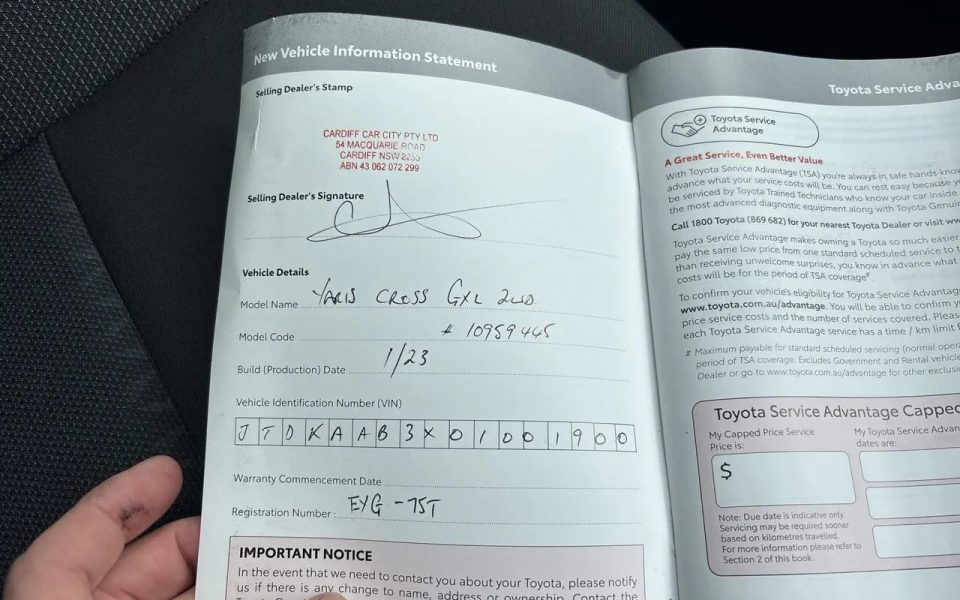 New Vehicle Information Statement
Selling Dealer's Stamp
CARDIFF CAR CITY PTY LTD
54 MACQUARIE ROAD
CARDIFF NSW 2285
ABN 43 062 072 299
Selling Dealer's Signature
Vehicle Details
Model Name YARIS CROSS GXL 2WD.
Model Code # 10959445
Build (Production) Date 1/23
Vehicle Identification Number (VIN)
JTDKAAB3X01001900
Warranty Commencement Date
Registration Number : EYG-75T
IMPORTANT NOTICE
In the event that we need to contact you about your Toyota, please notify
us if there is any change to name, address or ownership. Contact the
Toyota Service Adva
Toyota Service
Advantage
A Great Service, Even Better Value
With Toyota Service Advantage (TSA) you're always in safe hands know
advance what your service costs will be. You can rest easy because y
be serviced by Toyota Trained Technicians who know your car inside
the most advanced diagnostic equipment along with Toyota Genui
Call 1800 Toyota (869 682) for your nearest Toyota Dealer or visit ww
Toyota Service Advantage makes owning a Toyota so much easier
pay the same low price from one standard scheduled service to t
than receiving unwelcome surprises, you know in advance what
costs will be for the period of TSA coverage#.
To confirm your vehicle's eligibility for Toyota Service Advantag
www.toyota.com.au/advantage. You will be able to confirm y
price service costs and the number of services covered. Pleas
each Toyota Service Advantage service has a time / km limit f
# Maximum payable for standard scheduled servicing (normal opera
period of TSA coverage. Excludes Government and Rental vehicle
Dealer or go to www.toyota.com.au/advantage for other exclusi
Toyota Service Advantage Capped
My Capped Price Service
Price is:
$
My Toyota Service Advan
dates are:
Note: Due date is indicative only.
Servicing may be required sooner
based on kilometres travelled.
For more information please refer to
Section 2 of this book.